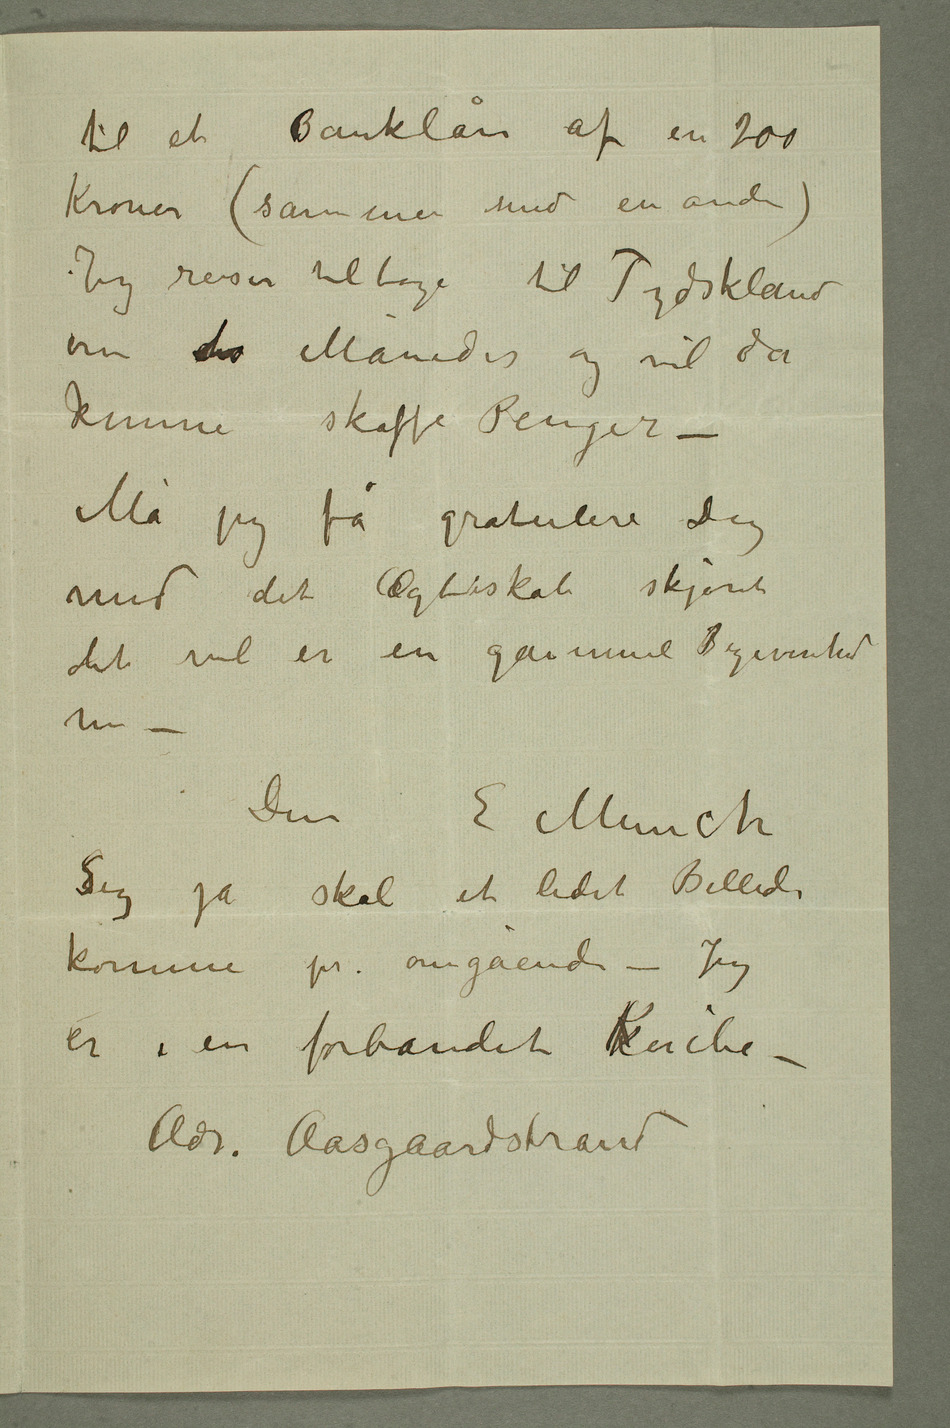 til et Banklån af en 200
Kroner (sammen med en anden)
Jeg reiser tilbage til Tydskland
om to Måneder og vil da
kunne skaffe Penger –
Må jeg få gratulere Dig
med det Ægteskab skjønt
det vel er en gammel Begivenhed
nu –
Din E Munch
Sig ja skal et lidet Billede
komme pr. omgående – Jeg
er i en forbandet Knibe –
Adr. Aasgaardstrand